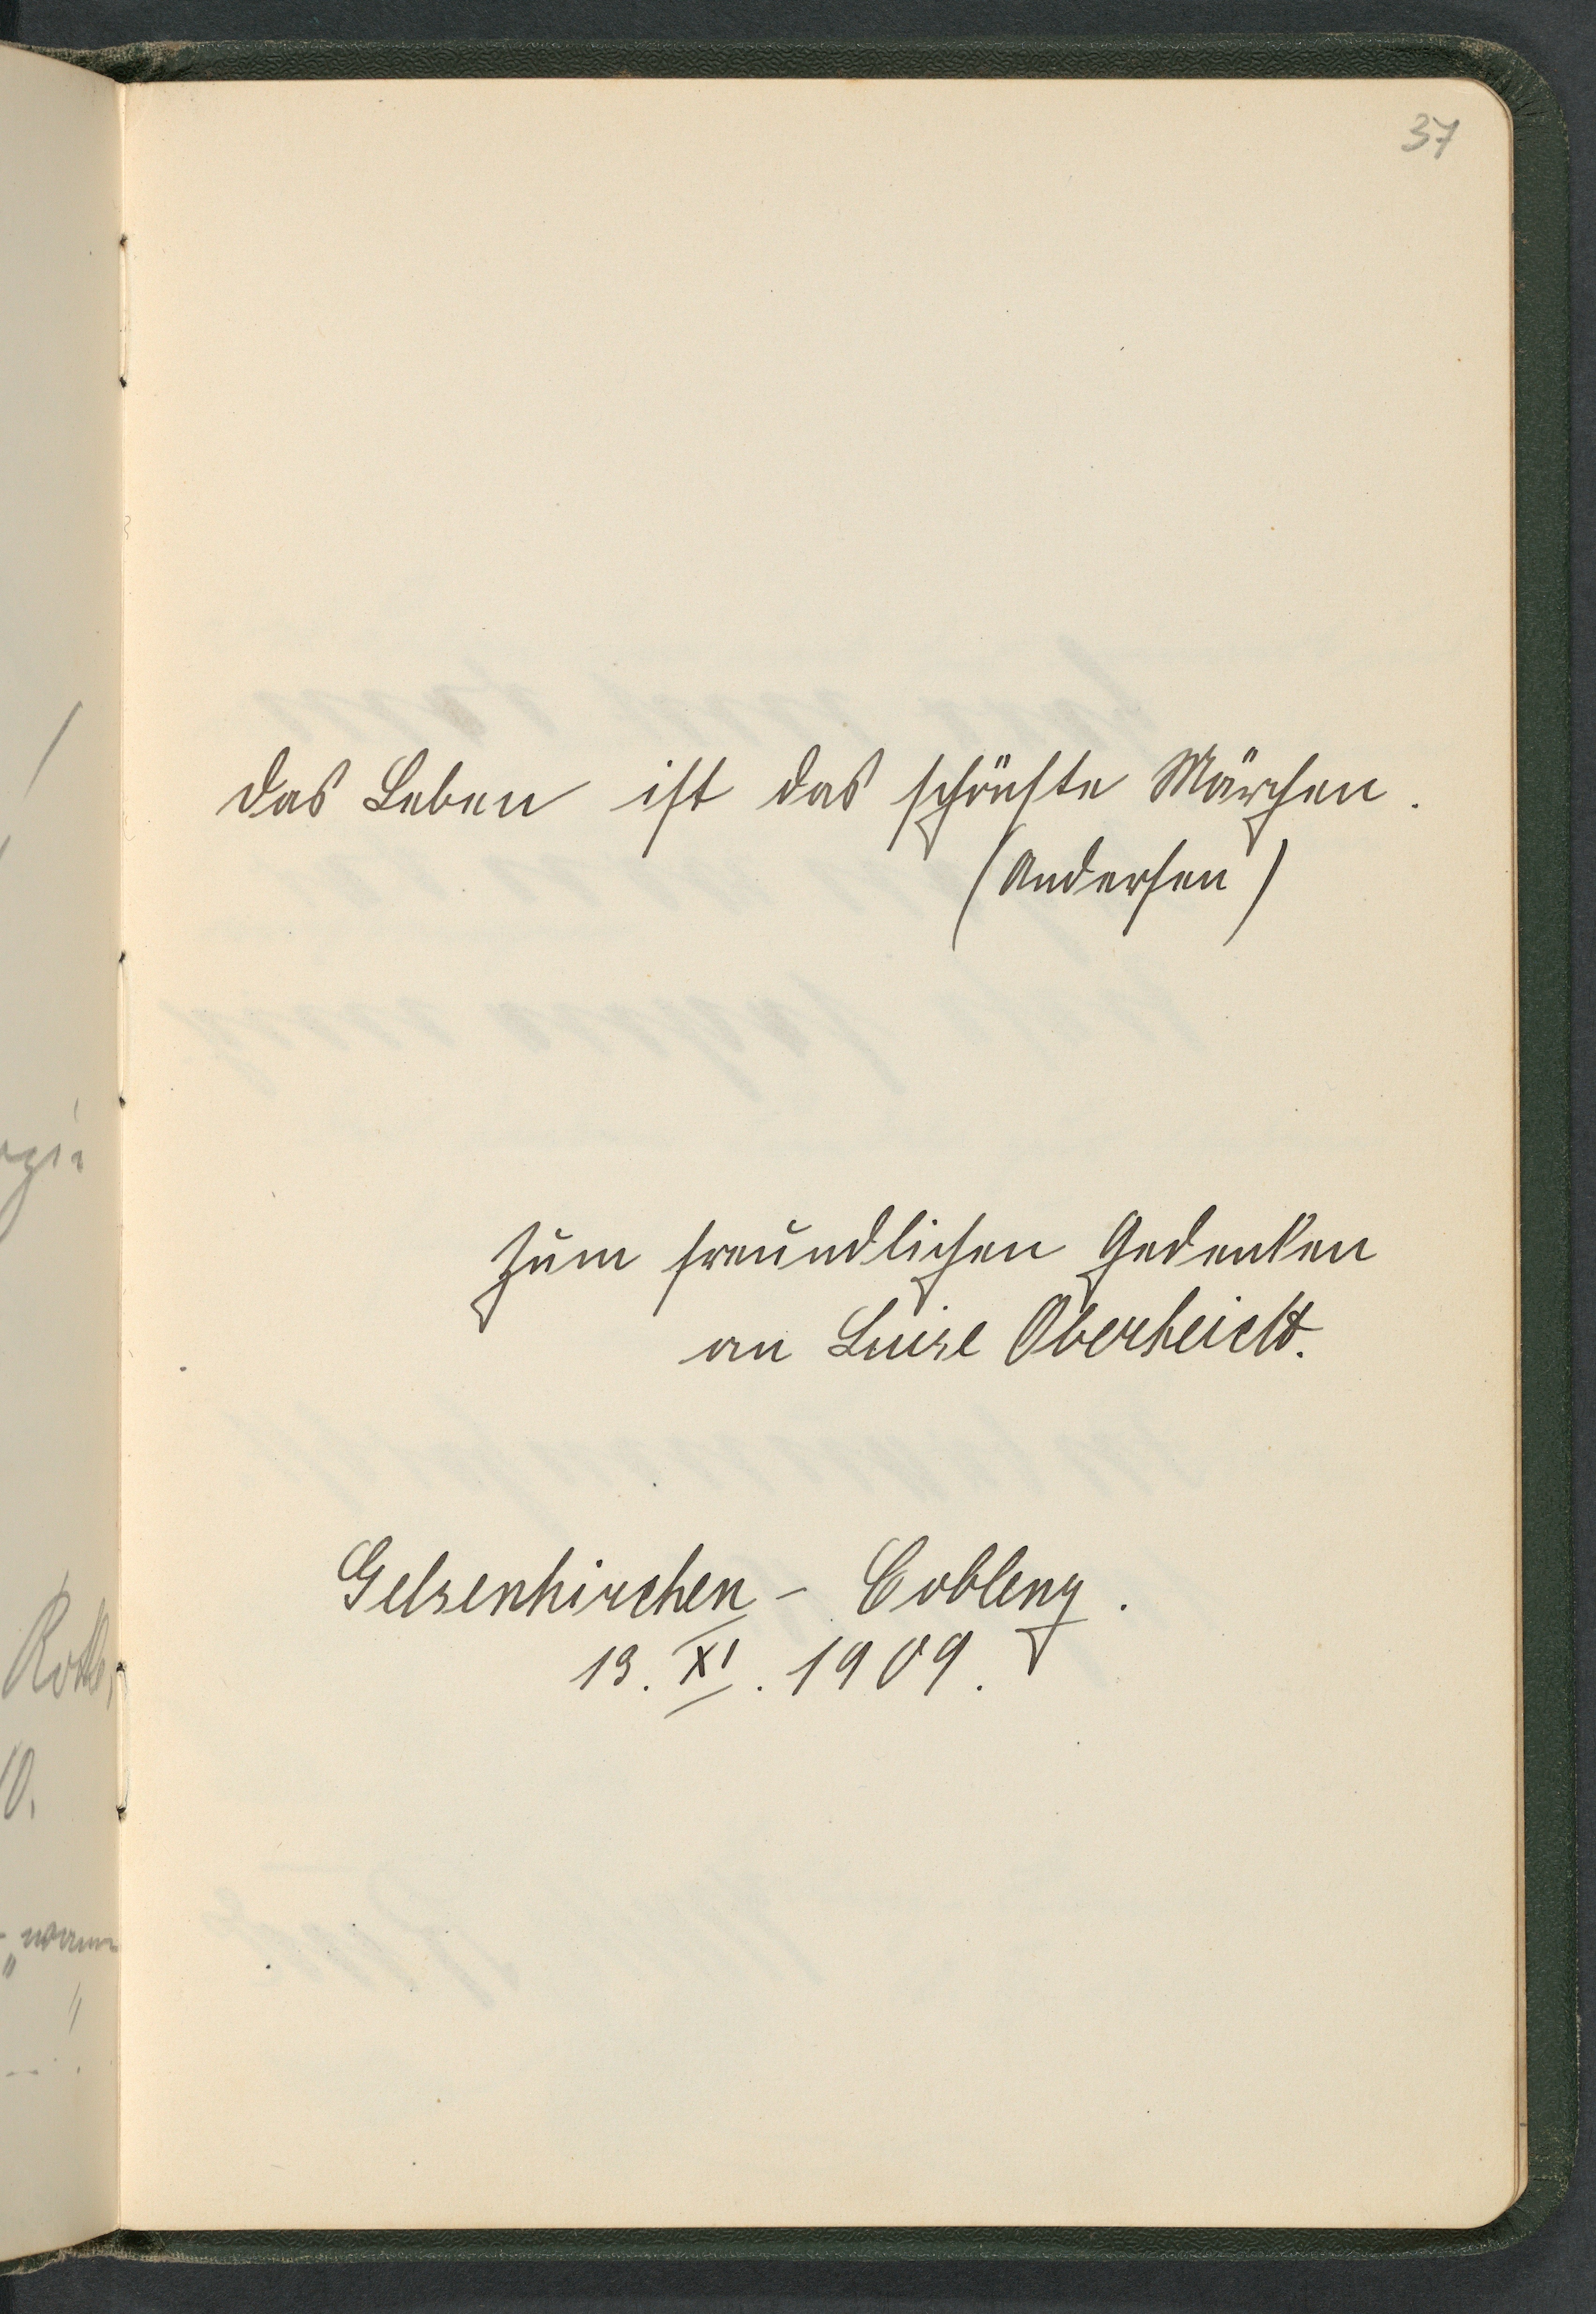 37
das Leben ist das schönste Märchen.
(Andersen)
Zum freundlichen Gedenken
an Luise
Gelsenkirchen - Coblenz.
13. XI. 1909.